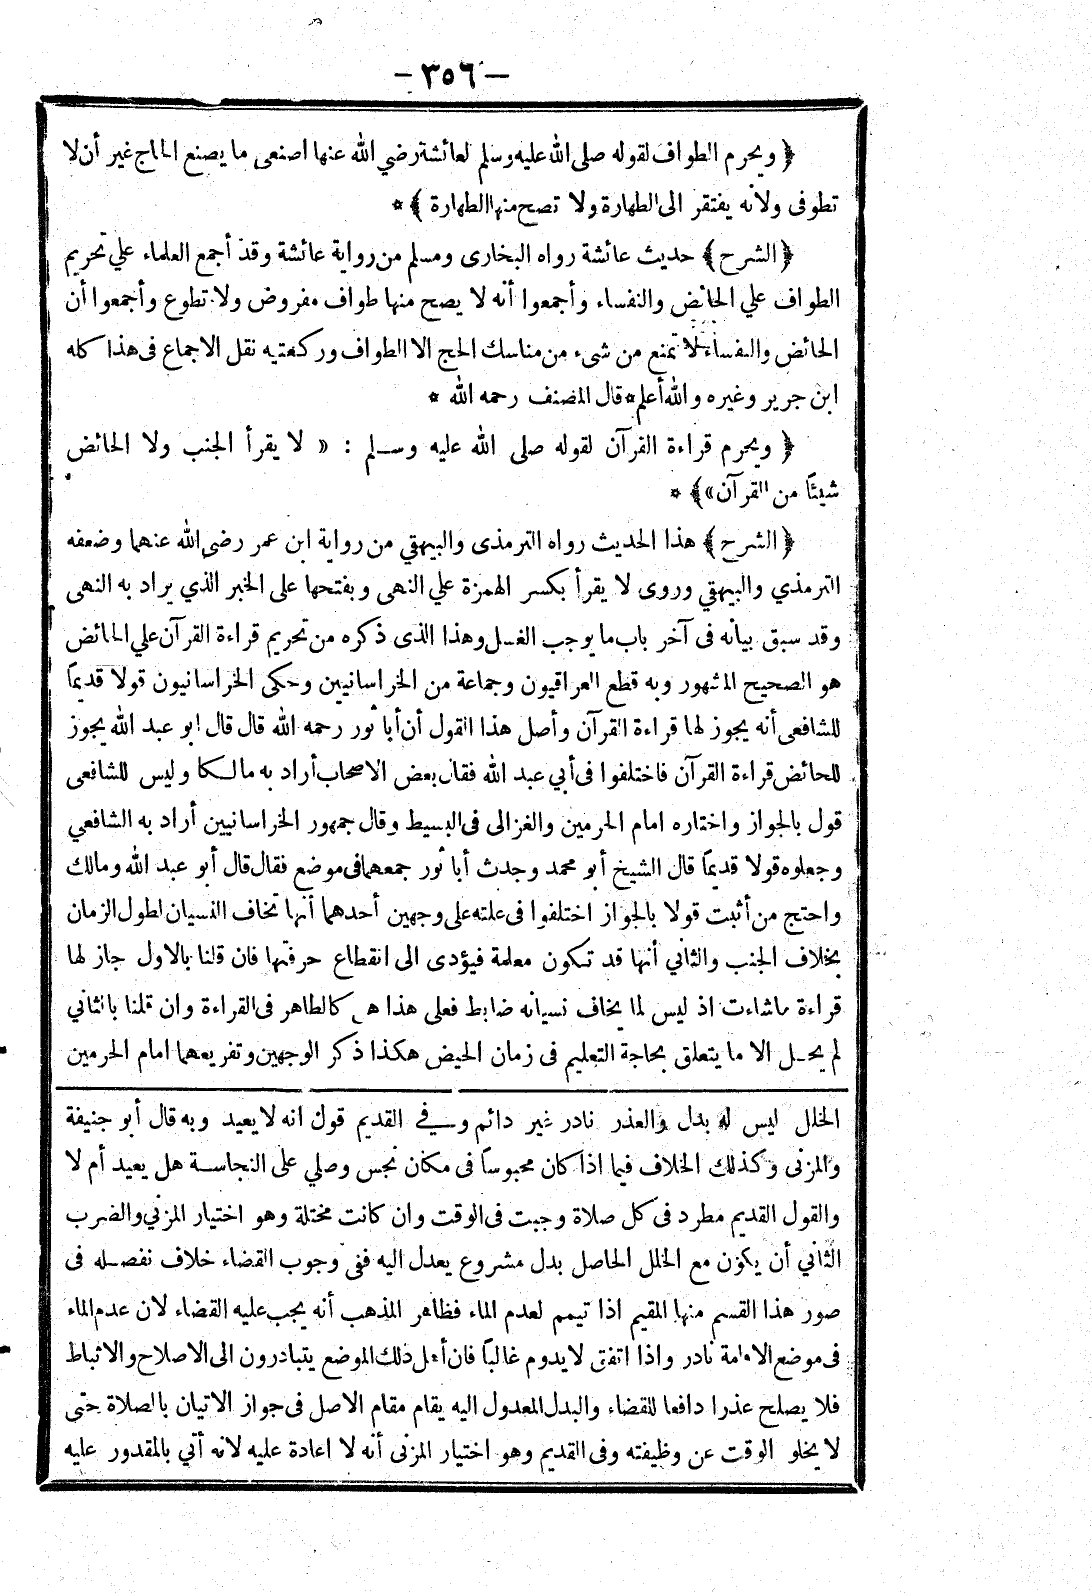 — ٣٥٦ —
﴿ ويحرم الطواف لقوله صلى الله عليه وسلم لعائشة رضي الله عنها اصنعى ما يصنع الحاج غير أن لا
تطوفى ولانه يفتقر الى الطهارة ولا تصح منها الطهارة ﴾ *
﴿ الشرح ﴾ حديث عائشة رواه البخارى ومسلم من رواية عائشة وقد أجمع العلماء علي تحريم
الطواف علي الحائض والنفساء وأجمعوا أنه لا يصح منها طواف مفروض ولا تطوع وأجمعوا أن
الحائض والنفساء لا تمنع من شىء من مناسك الحج الا الطواف وركعتيه نقل الاجماع فى هذا كله
ابن جرير وغيره والله أعلم * قال المصنف رحمه الله *
﴿ ويحرم قراءة القرآن لقوله صلى الله عليه وسلم : « لا يقرأ الجنب ولا الحائض
شيئًا من القرآن » ﴾ *
﴿ الشرح ﴾ هذا الحديث رواه الترمذى والبيهقي من رواية ابن عمر رضى الله عنهما وضعفه
الترمذي والبيهقي وروى لا يقرأ بكسر الهمزة علي النهى وبفتحها على الخبر الذي يراد به النهى
وقد سبق بيانه فى آخر باب ما يوجب الغسل وهذا الذى ذكره من تحريم قراءة القرآن علي الحائض
هو الصحيح المشهور وبه قطع العراقيون وجماعة من الخراسانيين وحكى الخراسانيون قولا قديمًا
للشافعى أنه يجوز لها قراءة القرآن وأصل هذا القول أن أبا ثور رحمه الله قال قال ابو عبد الله يجوز
للحائض قراءة القرآن فاختلفوا فى أبي عبد الله فقال بعض الاصحاب أراد به مالكا وليس للشافعى
قول بالجواز واختاره امام الحرمين والغزالى فى البسيط وقال جمهور الخراسانيين أراد به الشافعي
وجعلوه قولا قديمًا قال الشيخ أبو محمد وجدت أبا ثور جمعهما فى موضع فقال قال أبو عبد الله ومالك
واحتج من أثبت قولا بالجواز اختلفوا فى علته على وجهين أحدهما أنها تخاف النسيان لطول الزمان
بخلاف الجنب والثاني أنها قد تكون معلمة فيؤدى الى انقطاع حرفتها فان قلنا بالاول جاز لها
قراءة ما شاءت اذ ليس لما يخاف نسيانه ضابط فعلى هذا هى كالطاهر فى القراءة وان قلنا بالثاني
لم يحل الا ما يتعلق بحاجة التعليم فى زمان الحيض هكذا ذكر الوجهين وتفريعهما امام الحرمين
الخلل ليس له بدل والعذر نادر غير دائم وفي القديم قول انه لا يعيد وبه قال أبو حنيفة
والمزنى وكذلك الخلاف فيما اذا كان محبوسًا فى مكان نجس وصلي على النجاسة هل يعيد أم لا
والقول القديم مطرد فى كل صلاة وجبت فى الوقت وان كانت مختلة وهو اختيار المزني والضرب
الثاني أن يكون مع الخلل الحاصل بدل مشروع يعدل اليه ففى وجوب القضاء خلاف نفصله فى
صور هذا القسم منها المقيم اذا تيمم لعدم الماء فظاهر المذهب أنه يجب عليه القضاء لان عدم الماء
فى موضع الاقامة نادر واذا اتفق لا يدوم غالبًا فان أهل ذلك الموضع يتبادرون الى الاصلاح والانباط
فلا يصلح عذرا دافعا للقضاء والبدل المعدول اليه يقام مقام الاصل فى جواز الاتيان بالصلاة حتى
لا يخلو الوقت عن وظيفته وفى القديم وهو اختيار المزنى أنه لا اعادة عليه لانه أتي بالمقدور عليه